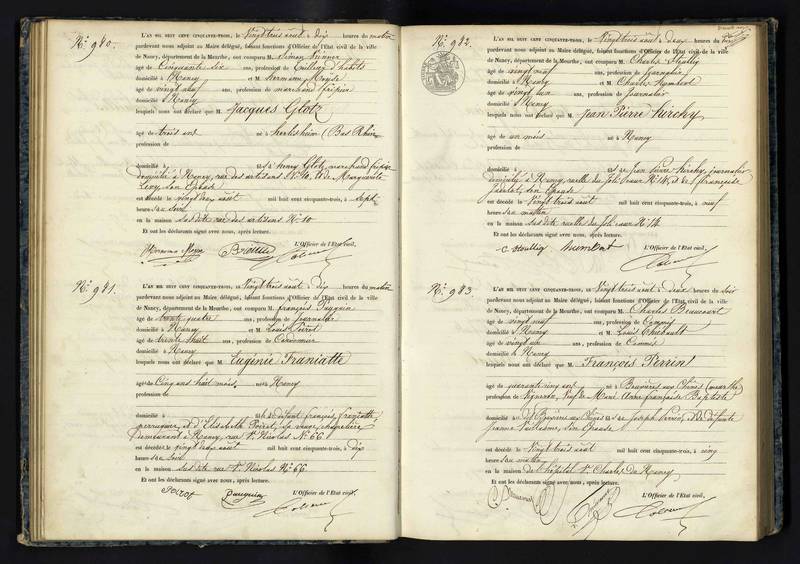 N.º 980.
L'AN MIL HUIT CENT CINQUANTE-TROIS, le Vingt trois août à dix heures du matin
pardevant nous adjoint au Maire délégué, faisant fonctions d'Officier de l'Etat civil de la ville
de Nancy, département de la Meurthe, ont comparu M. Simon
âgé de Cinquante six ans, profession de d'habits
domicilié à Nancy et M. Hermann Moyse
âgé de vingt neuf ans, profession de marchand fripier
domicilié à Nancy
lesquels nous ont déclaré que M. Jacques Glotz
âgé de trois ans né à herlisheim (Bas Rhin)
profession de
domicilié à fils d'henry Glotz, marchand fripier
domicilié à Nancy, rue des artisans N.º 10, et de Marguerite
Levy, son Epouse
est décédé le vingt deux août mil huit cent cinquante-trois, à sept
heures du soir
en la maison susdite rue des artisans N.º 10
Et ont les déclarants signé avec nous, après lecture.
L'Officier de l'Etat civil,
N.º 981.
L'AN MIL HUIT CENT CINQUANTE-TROIS, le Vingt trois août à dix heures du matin
pardevant nous adjoint au Maire délégué, faisant fonctions d'Officier de l'Etat civil de la ville
de Nancy, département de la Meurthe, ont comparu M. françois
âgé de trente quatre ans, profession de journalier
domicilié à Nancy et M. Louis Poirot
âgé de trente huit ans, profession de Cordonnier
domicilié à Nancy
lesquels nous ont déclaré que M. Eugénie Franiatte
âgé de Cinq ans huit mois, né à Nancy
profession de
domicilié à fille de défunt françois franiatte
perruquier, et d'Elisabeth Poirot, sa veuve, chapelière
demeurant à Nancy, rue St Nicolas N.º 66
est décédée le vingt deux août mil huit cent cinquante-trois, à dix
heures du soir
en la maison susdite rue St Nicolas N.º 66.
Et ont les déclarants signé avec nous, après lecture.
L'Officier de l'Etat civil,
Poirot
N.º 982.
L'AN MIL HUIT CENT CINQUANTE-TROIS, le Vingt trois août à deux heures du soir
pardevant nous adjoint au Maire délégué, faisant fonctions d'Officier de l'Etat civil de la ville
de Nancy, département de la Meurthe, ont comparu M. Charles
âgé de vingt neuf ans, profession de journalier
domicilié à Nancy et M. Charles Humbert
âgé de vingt un ans, profession de journalier
domicilié à Nancy
lesquels nous ont déclaré que M. Jean Pierre Kirchy
âgé de un mois né à Nancy
profession de
domicilié à fils de Jean Pierre Kirchy, journalier
domicilié à Nancy, ruelle du joli Coeur N.º 14, et de françoise
son Epouse
est décédé le Vingt trois août mil huit cent cinquante-trois, à neuf
heures du matin
en la maison susdite ruelle du joli coeur N.º 14
Et ont les déclarants signé avec nous, après lecture.
L'Officier de l'Etat civil,
humbert
N.º 983.
L'AN MIL HUIT CENT CINQUANTE-TROIS, le Vingt trois août à deux heures du soir
pardevant nous adjoint au Maire délégué, faisant fonctions d'Officier de l'Etat civil de la ville
de Nancy, département de la Meurthe, ont comparu M. Charles Beaucourt
âgé de vingt neuf ans, profession de Commis
domicilié à Nancy et M. Louis Thiébault
âgé de vingt un ans, profession de Commis
domicilié à Nancy
lesquels nous ont déclaré que M. François Perrin
âgé de quarante cinq ans né à Bouxières aux Chênes (meurthe)
profession de Vigneron, Veuf de Marie Anne françoise Baptiste
domicilié à Bouxières aux Chênes fils de Joseph Perrin, et de défunte
Jeanne son Epouse
est décédé le Vingt trois août mil huit cent cinquante-trois, à cinq
heures du matin
en la maison de l'hôpital St Charles de Nancy
Et ont les déclarants signé avec nous, après lecture.
L'Officier de l'Etat civil,